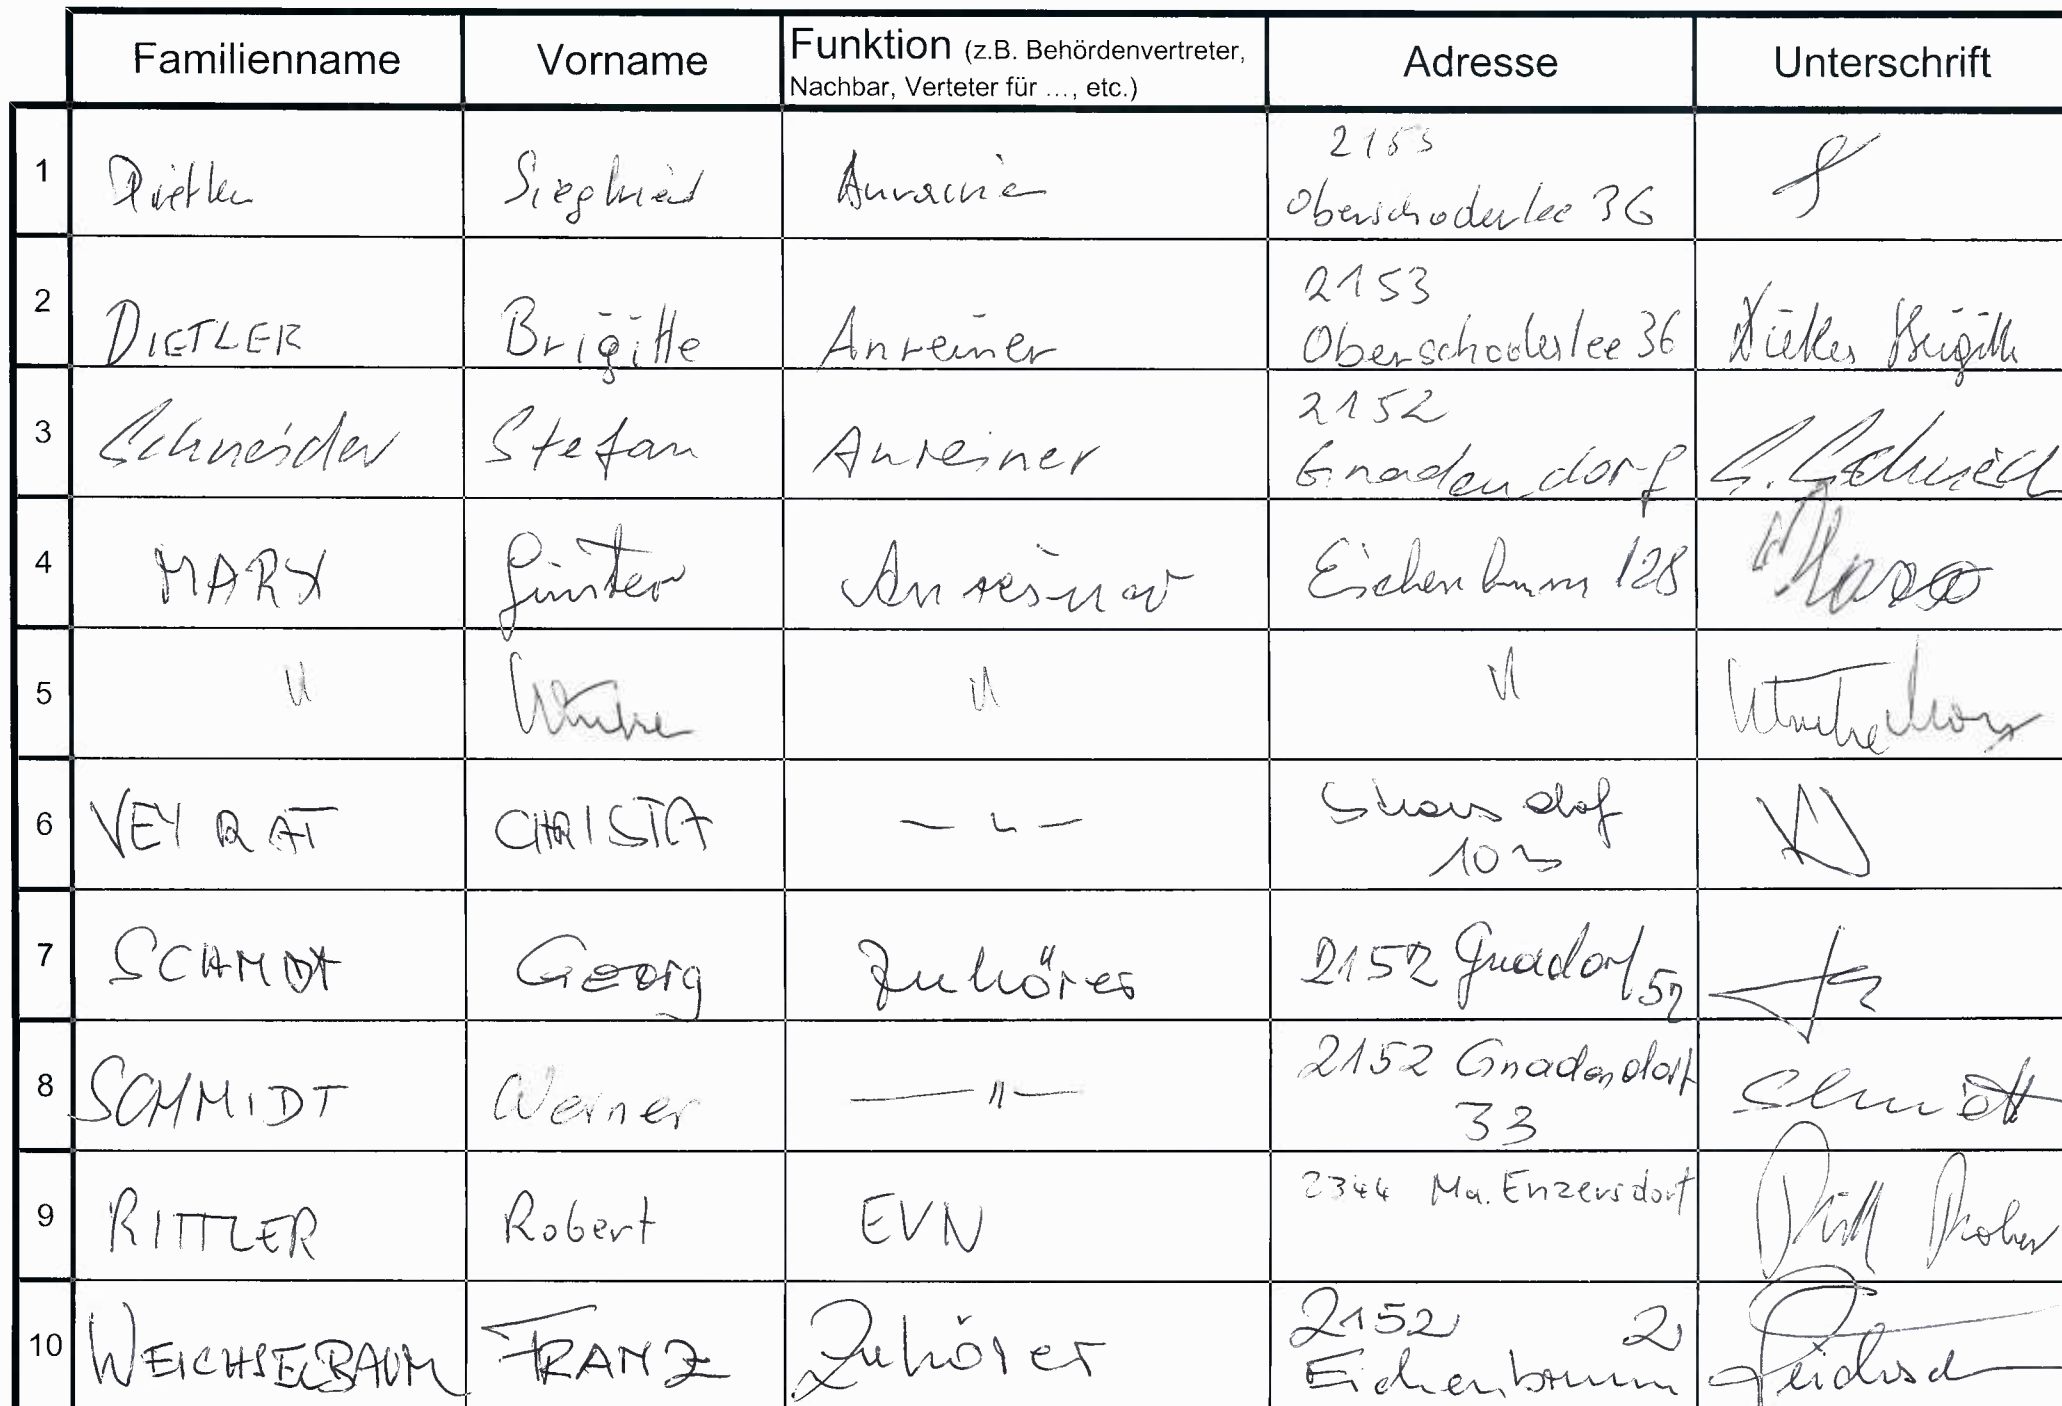 Familienname Vorname Funktion (z.B. Behördenvertreter, Adresse Unterschrift
Nachbar, Verteter für ..., etc.)
1 Dietler Siegfried 2153
Oberschoderlee 36
2 DIETLER Brigitte Anreiner 2153
Oberschoderlee 36 Dietler Brigitte
3 Schneider Stefan Anreiner 2152
Gnadendorf S. Schneid
4 MARX Günter Anreiner Eichenbrunn 128 Marx
5 " " "
6 VEYRAT CHRISTA — " —
10
7 SCHMIDT Georg Zuhörer 2152 Gnadorf 52
8 SCHMIDT Werner — " — 2152 Gnadendorf
33 Schmidt
9 RITTLER Robert EVN 2344 Ma. Enzersdorf
10 WEICHSELBAUM FRANZ Zuhörer 2152 2
Eichenbrunn